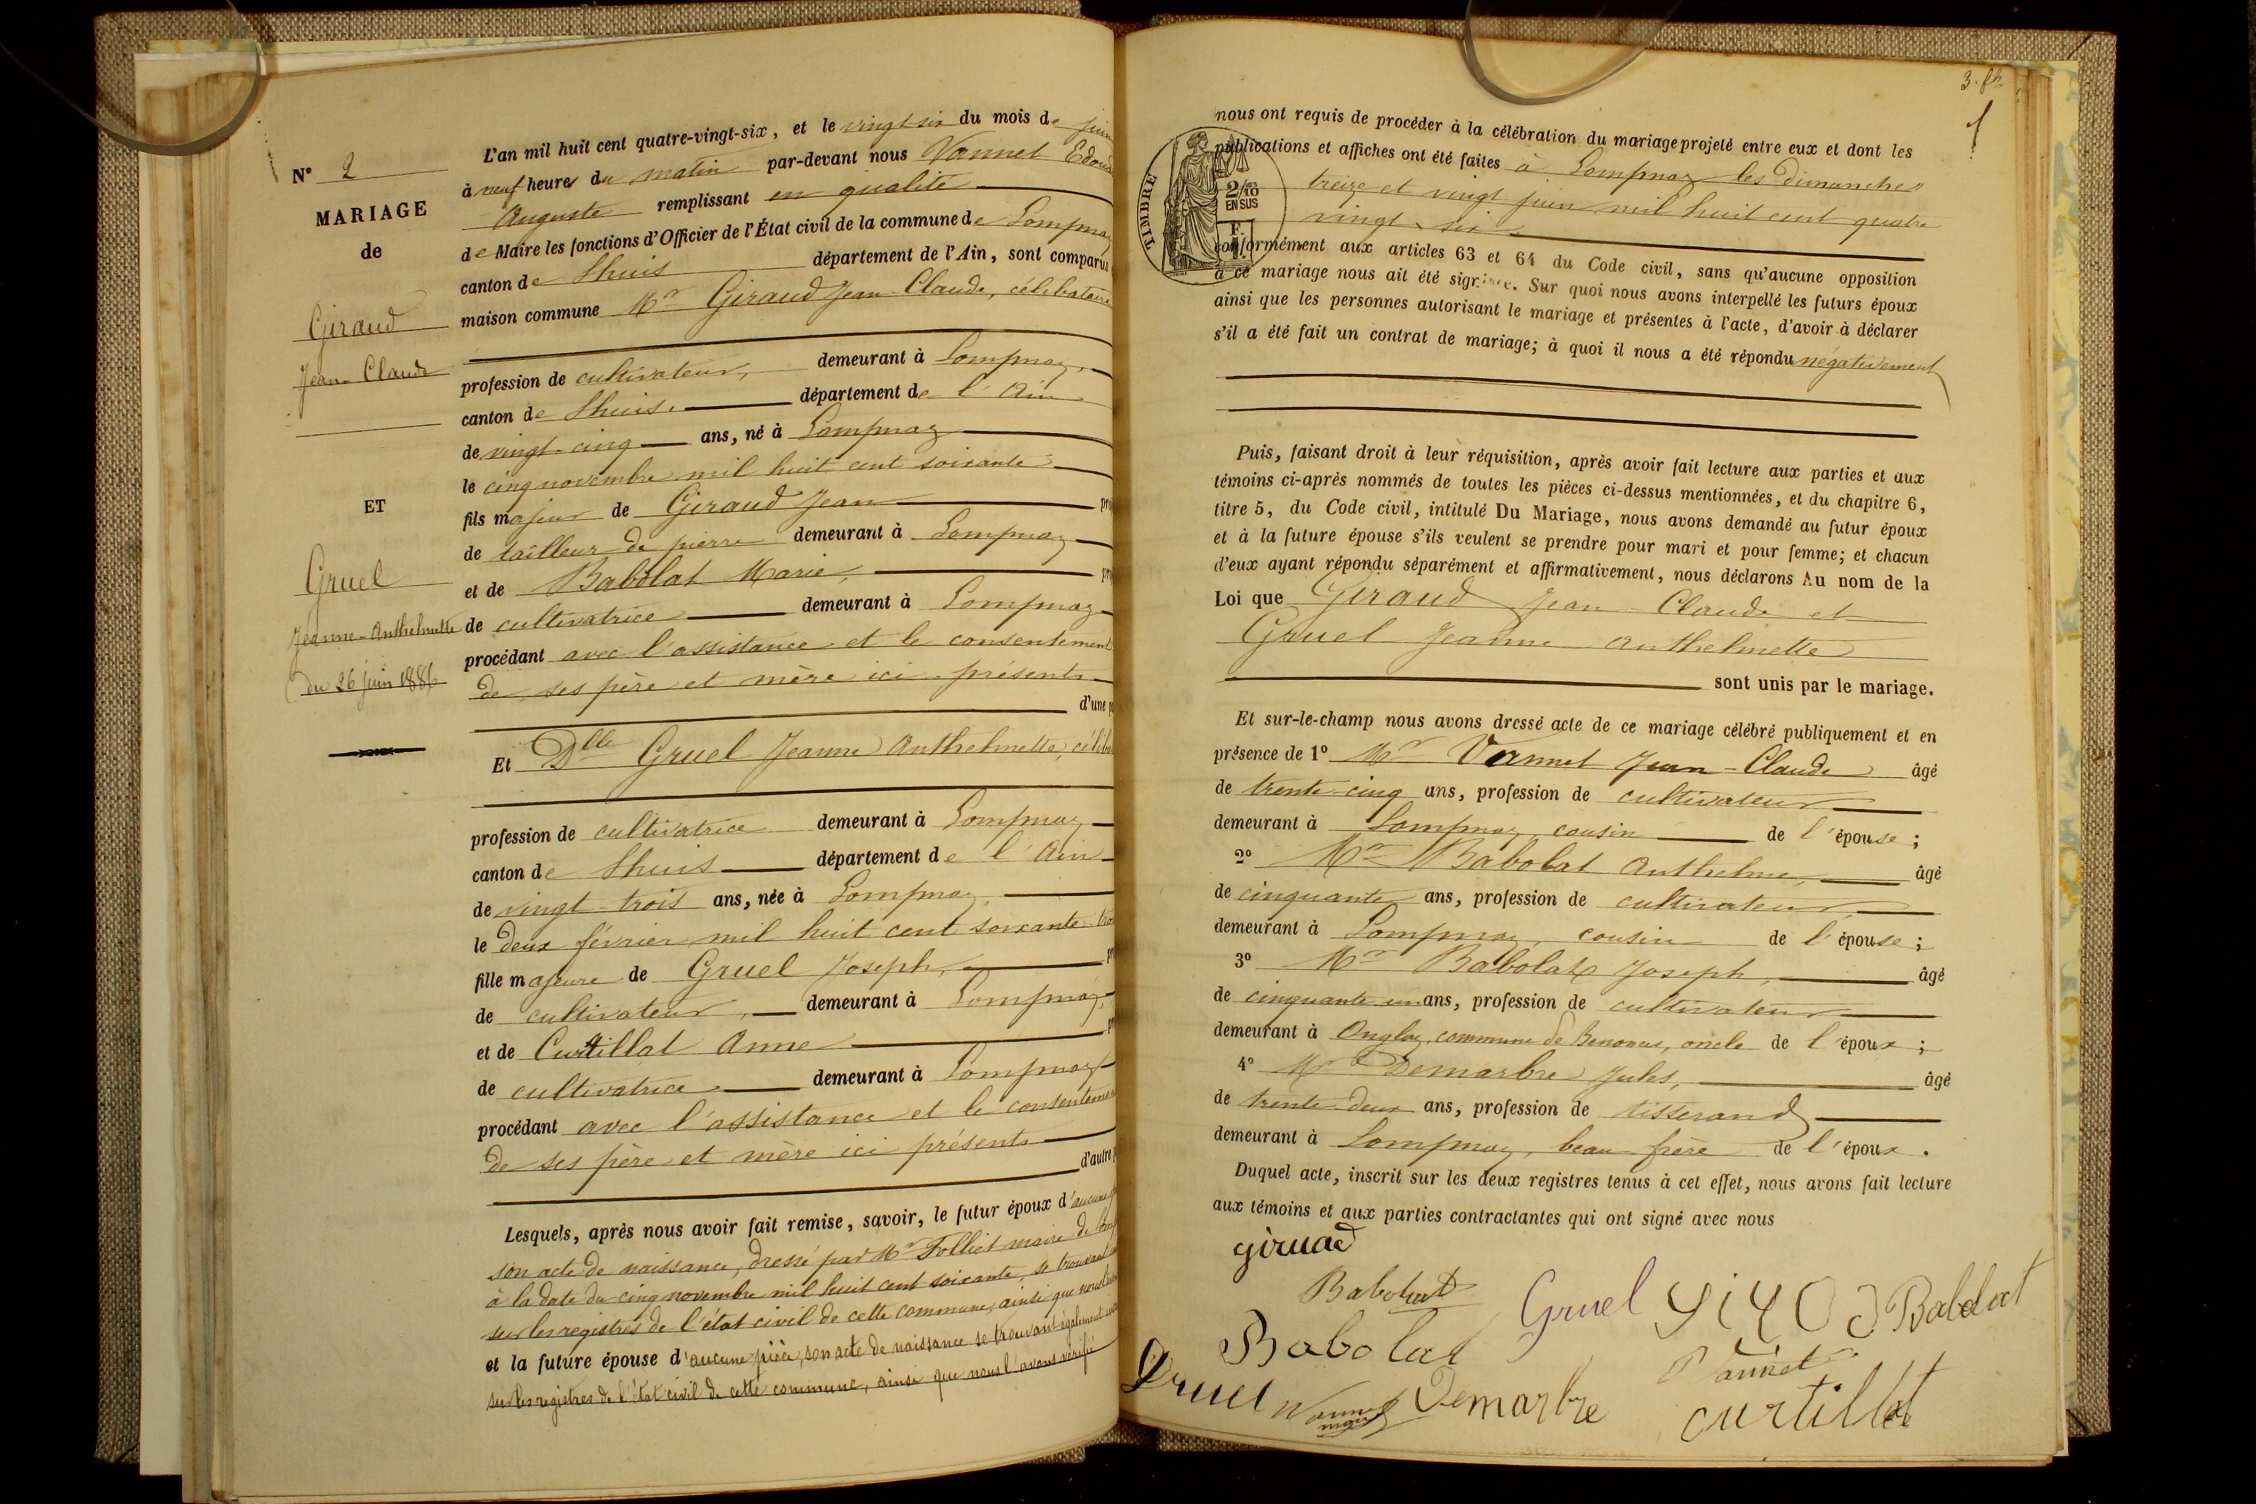 N° 2
MARIAGE
de
Giraud
Jean-Claude
ET
Gruel
Jeanne-Anthelmette
du 26 juin 1886
L'an mil huit cent quatre-vingt-six, et le vingt six du mois de juin
à neuf heures du matin par-devant nous Vannel Edoua
Auguste remplissant en qualité
de Maire les fonctions d'Officier de l'État civil de la commune de Lompnaz
canton de Lhuis département de l'Ain, sont comparus
maison commune Mr Giraud Jean-Claude, célibataire
profession de cultivateur, demeurant à Lompnaz,
canton de Lhuis. département de l'Ain
de vingt-cinq ans, né à Lompnaz
le cinq novembre mil huit cent soixante
fils majeur de Giraud Jean pro
de tailleur de pierre demeurant à Lompnaz
et de Babolat Marie, pro
de cultivatrice demeurant à Lompnaz
procédant avec l'assistance et le consentement
de ses père et mère ici présents
d'une p
Et Dlle Gruel Jeanne Anthelmette, céliba
profession de cultivatrice demeurant à Lompnaz
canton de Lhuis département de l'Ain
de vingt-trois ans, née à Lompnaz,
le deux février mil huit cent soixante-tro
fille majeure de Gruel Joseph, p
de cultivateur, demeurant à Lompnaz,
et de Curtillat Anne p
de cultivatrice demeurant à Lompnaz
procédant avec l'assistance et le consentemen
de ses père et mère ici présents
d'autre p
Lesquels, après nous avoir fait remise, savoir, le futur époux d'aucune
son acte de naissance, dressé par Mr Folliet maire de Lomp
à la date du cinq novembre mil huit cent soixante, se trouvant
sur les registres de l'état civil de cette commune, ainsi que nous l'
et la future épouse d'aucune pièce, son acte de naissance se trouvant également
sur les registres de l'état civil de cette commune, ainsi que nous l'avons vérifié
3.
TIMBRE
2/10
EN SUS
nous ont requis de procéder à la célébration du mariage projeté entre eux et dont les
publications et affiches ont été faites à Lompnaz les dimanches
treize et vingt juin mil huit cent quatre
vingt-six
conformément aux articles 63 et 64 du Code civil, sans qu'aucune opposition
à ce mariage nous ait été signifiée. Sur quoi nous avons interpellé les futurs époux
ainsi que les personnes autorisant le mariage et présentes à l'acte, d'avoir à déclarer
s'il a été fait un contrat de mariage; à quoi il nous a été répondu négativement
Puis, faisant droit à leur réquisition, après avoir fait lecture aux parties et aux
témoins ci-après nommés de toutes les pièces ci-dessus mentionnées, et du chapitre 6,
titre 5, du Code civil, intitulé Du Mariage, nous avons demandé au futur époux
et à la future épouse s'ils veulent se prendre pour mari et pour femme; et chacun
d'eux ayant répondu séparément et affirmativement, nous déclarons Au nom de la
Loi que Giraud Jean-Claude et
Gruel Jeanne Anthelmette
sont unis par le mariage.
Et sur-le-champ nous avons dressé acte de ce mariage célébré publiquement et en
présence de 1° Mr Vannel Jean-Claude âgé
de trente-cinq ans, profession de cultivateur
demeurant à Lompnaz, cousin de l'épouse;
2° Mr Babolat Anthelme, âgé
de cinquante ans, profession de cultivateur
demeurant à Lompnaz, cousin de l'épouse;
3° Mr Babolat Joseph, âgé
de cinquante-un ans, profession de cultivateur
demeurant à Onglas, commune de Benonces, oncle de l'époux;
4° Mr Demarbre Jules, âgé
de trente-deux ans, profession de tisserand
demeurant à Lompnaz, beau-frère de l'époux.
Duquel acte, inscrit sur les deux registres tenus à cet effet, nous avons fait lecture
aux témoins et aux parties contractantes qui ont signé avec nous
giruad
Babolat Gruel Babolat
Babolat Vannet
Gruel Demarbre curtillat